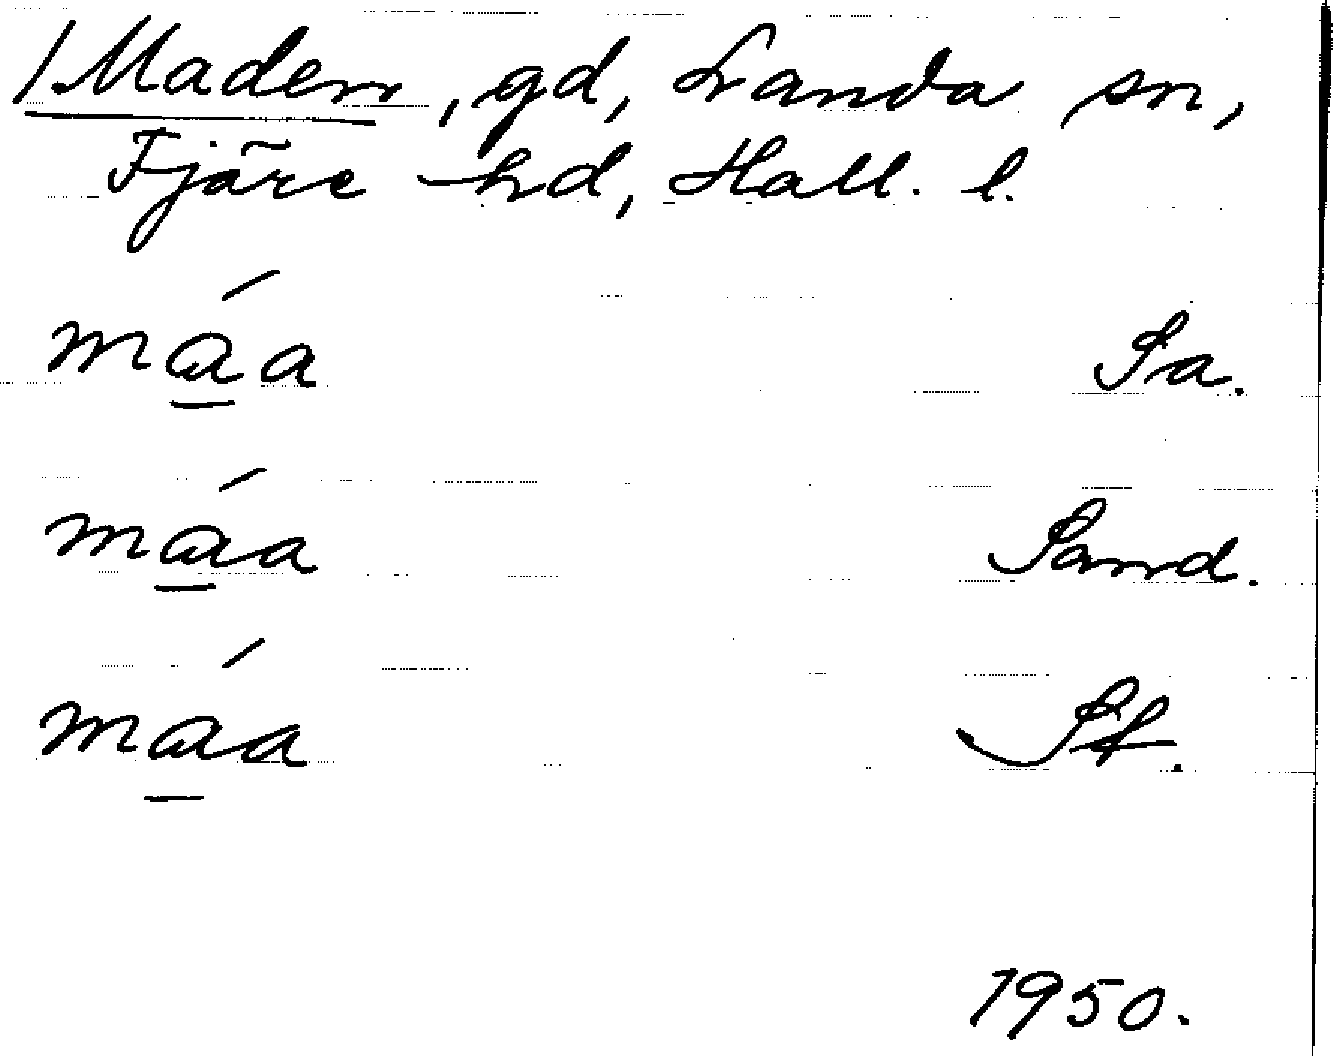 /Maden, gd, Landa sn,
Fjäre hd, Hall. l.
má̱a Sa.
má̱a Sand.
má̱a Sf.
1950.